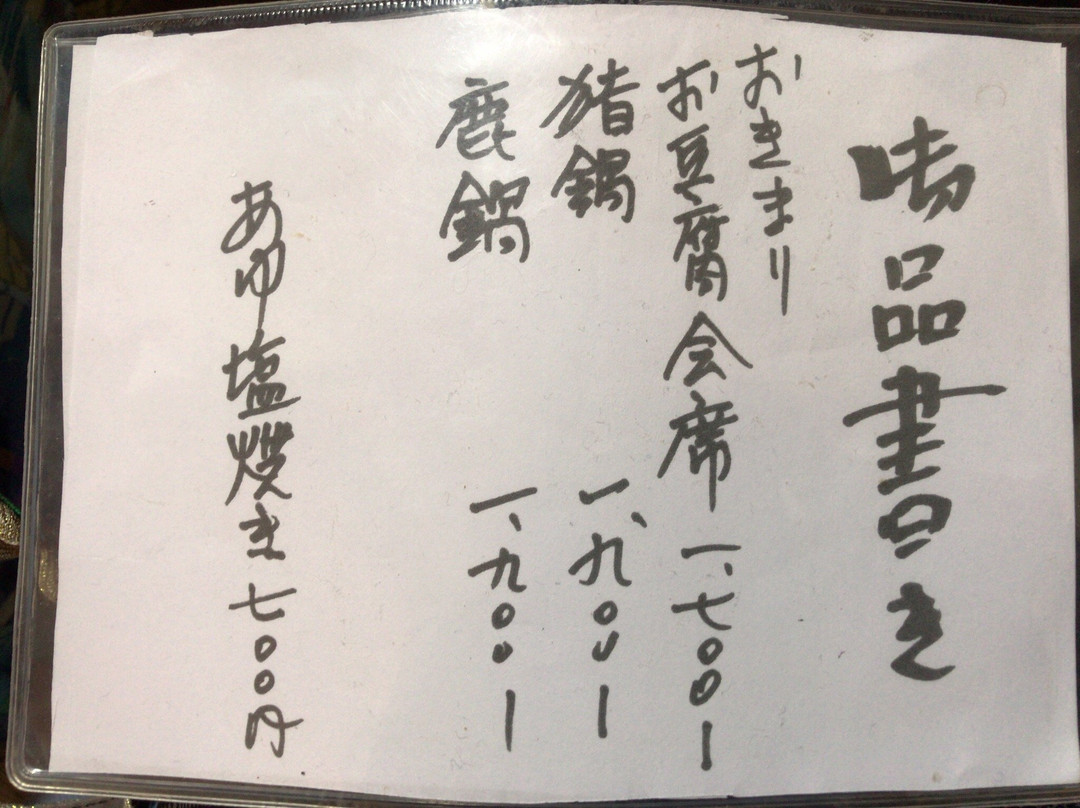 御品書き
おきまり
お豆腐会席 一、七〇〇ー
猪鍋 一、九〇〇ー
鹿鍋 一、九〇〇ー
あゆ塩焼き七〇〇円